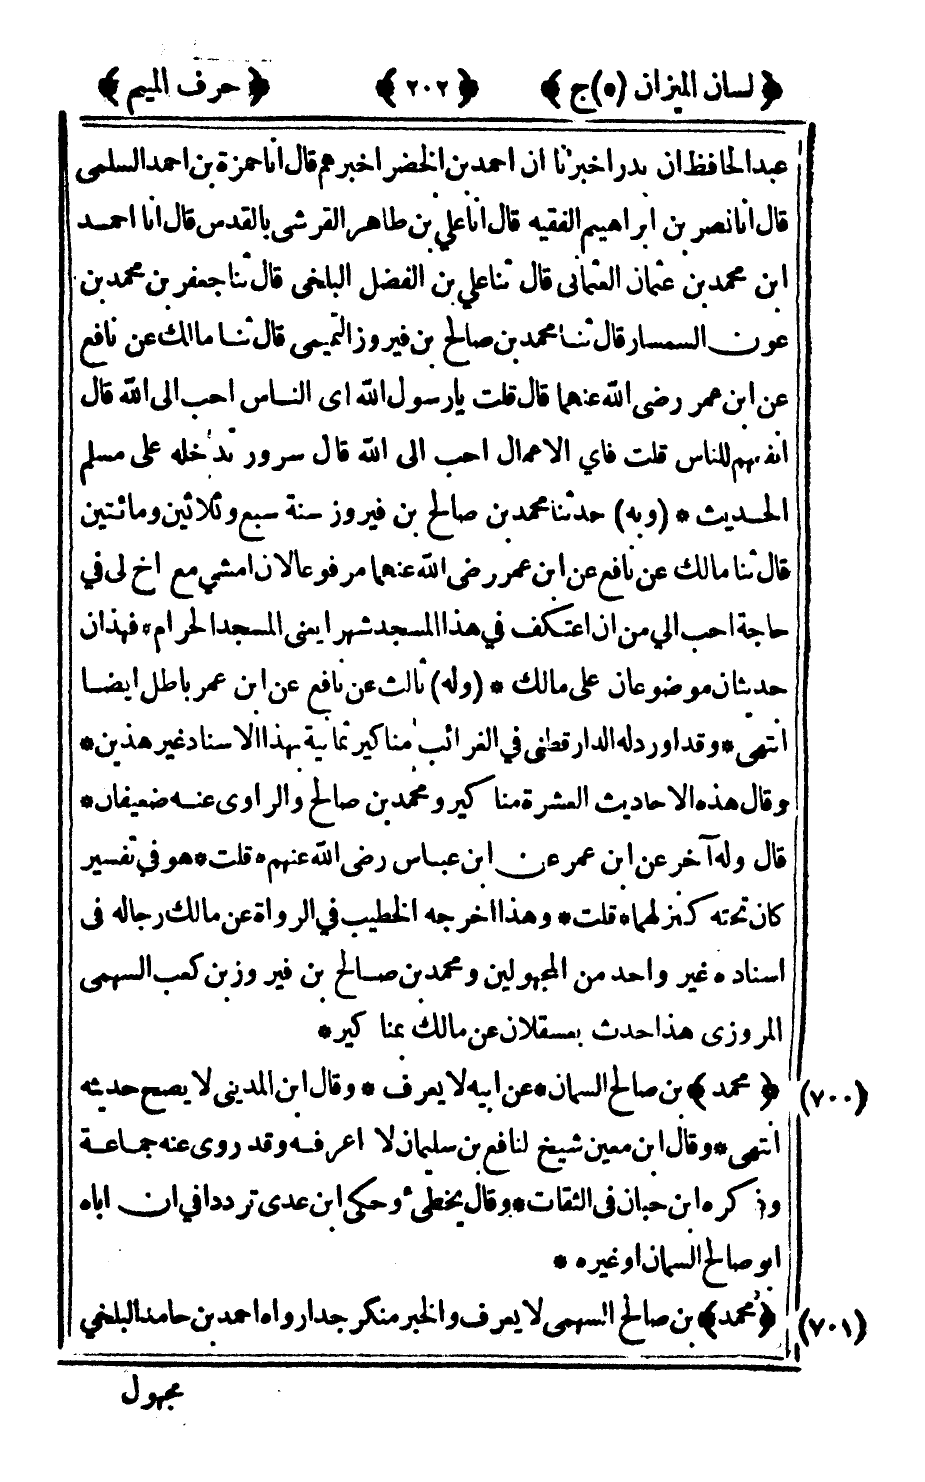 ﴿ لسان الميزان (٥)ج ﴾ ﴿ ٢٠٢ ﴾ ﴿ حرف الميم ﴾
عبد الحافظ ان بدرا خبرنا ان احمد بن الخضر اخبرهم قال انا حمزة بن احمد السلمى
قال انا نصر بن ابراهيم الفقيه قال انا علي بن طاهر القرشى بالقدس قال انا احمد
ابن محمد بن عثمان العثمانى قال ثنا علي بن الفضل البلخى قال ثنا جعفر بن محمد بن
عون السمسار قال ثنا محمد بن صالح بن فيروز التميمى قال ثنا مالك عن نافع
عن ابن عمر رضى الله عنهما قال قلت يا رسول الله اى الناس احب الى الله قال
انفعهم للناس قلت فاي الاعمال احب الى الله قال سرور تدخله على مسلم
الحديث * (وبه) حدثنا محمد بن صالح بن فيروز سنة سبع وثلاثين ومائتين
قال ثنا مالك عن نافع عن ابن عمر رضى الله عنهما مرفوعا لان امشي مع اخ لى في
حاجة احب الي من ان اعتكف في هذا المسجد شهرا يعنى المسجد الحرام * فهذان
حديثان موضوعان على مالك * (وله) ثالث عن نافع عن ابن عمر باطل ايضا
انتهى * وقد اورد له الدارقطنى في الغرائب مناكير ثمانية بهذا الاسناد غير هذين *
وقال هذه الاحاديث العشرة مناكير ومحمد بن صالح والراوى عنه ضعيفان *
قال وله آخر عن ابن عمر عن ابن عباس رضى الله عنهم * قلت * هو في تفسير
كان تحته كنز لهما * قلت * وهذا اخرجه الخطيب في الرواة عن مالك رجاله فى
اسناده غير واحد من المجهولين ومحمد بن صالح بن فيروز بن كعب السهمى
المروزى هذا حدث بعسقلان عن مالك بمناكير *
(٧٠٠) ﴿ محمد ﴾ بن صالح السمان * عن ابيه لا يعرف * وقال ابن المدينى لا يصح حديثه
انتهى * وقال ابن معين شيخ لنافع بن سليمان لا اعرفه وقد روى عنه جماعة
وذكره ابن حبان فى الثقات * وقال يخطئ وحكى ابن عدى ترددا في ان اباه
ابو صالح السمان او غيره *
(٧٠١) ﴿ محمد ﴾ بن صالح السهمى لا يعرف والخبر منكر جدا رواه احمد بن حامد البلخي
مجهول